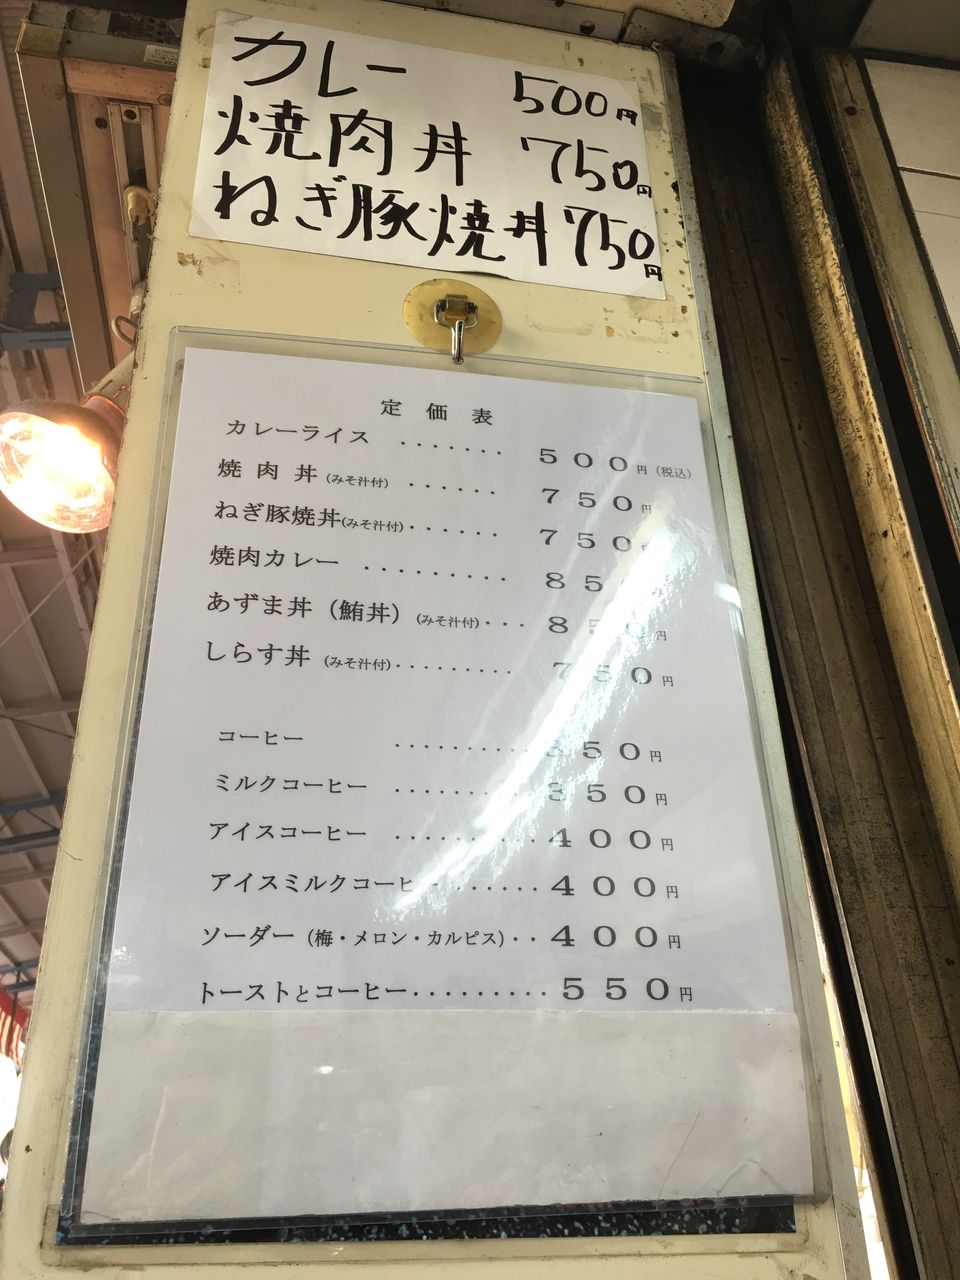 カレー 500円
焼肉丼 750円
ねぎ豚焼丼 750円
定価表
カレーライス ······· 500円(税込)
焼肉丼(みそ汁付) ······ 750円
ねぎ豚焼丼(みそ汁付)······ 750円
焼肉カレー ········· 85
あずま丼(鮪丼)(みそ汁付)··· 850円
しらす丼(みそ汁付)········· 750円
コーヒー ·········· 350円
ミルクコーヒー ·········· 350円
アイスコーヒー ·········· 400円
アイスミルクコーヒー ······ 400円
ソーダー(梅・メロン・カルピス)·· 400円
トーストとコーヒー·········· 550円